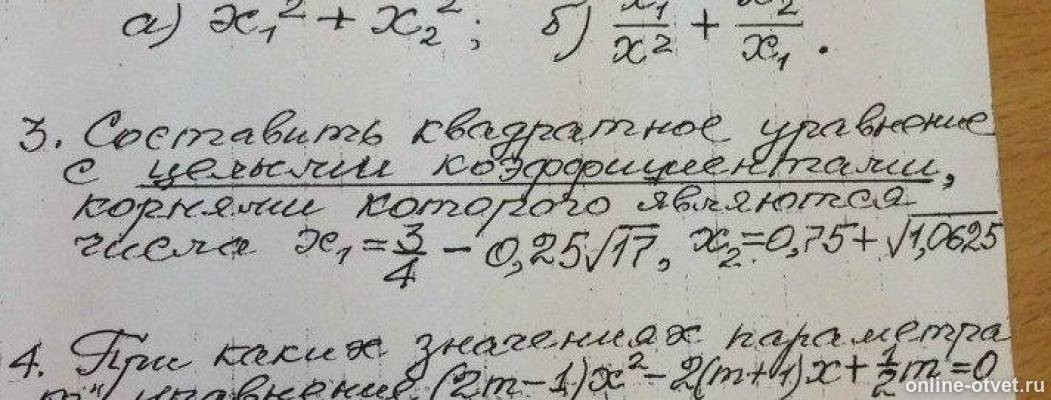 а) x₁² + x₂² ; б) x₁/x² + x₂/x₁ .
3. Составить квадратное уравнение
с целыми коэффициентами,
корнями которого являются
числа x₁ = 3/4 - 0,25√17, x₂ = 0,75 + √1,0625
4. При каких значениях параметра
"m" уравнение (2m-1)x² - 2(m+1)x + 1/2 m = 0
online-otvet.ru